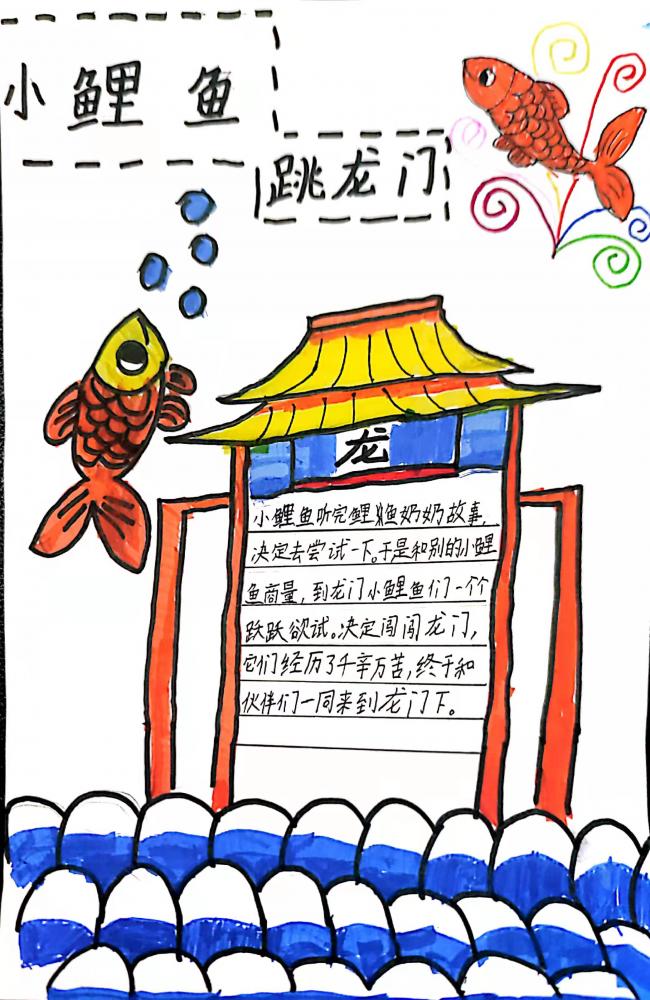 小鲤鱼
跳龙门
龙
小鲤鱼听完鲤鱼奶奶故事,
决定去尝试一下。于是和别的小鲤
鱼商量,到龙门小鲤鱼们一个个
跃跃欲试。决定闯闯龙门,
它们经历了千辛万苦,终于和
伙伴们一同来到龙门下。